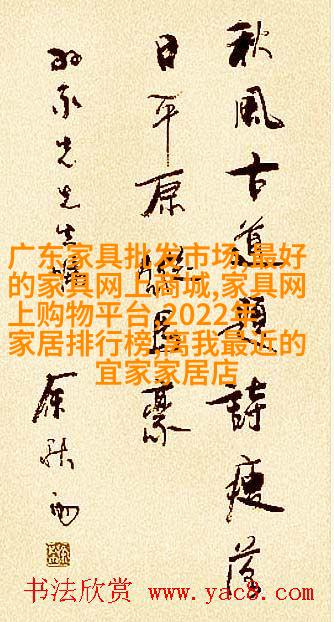 秋風古道題詩瘦落
日平原縱馬豪
先生
余秋雨
广东家具批发市场,最好
的家具网上商城,家具网
上购物平台,2022年
家居排行榜,离我最近的
宜家家居店
书法欣赏 www.yac8.com